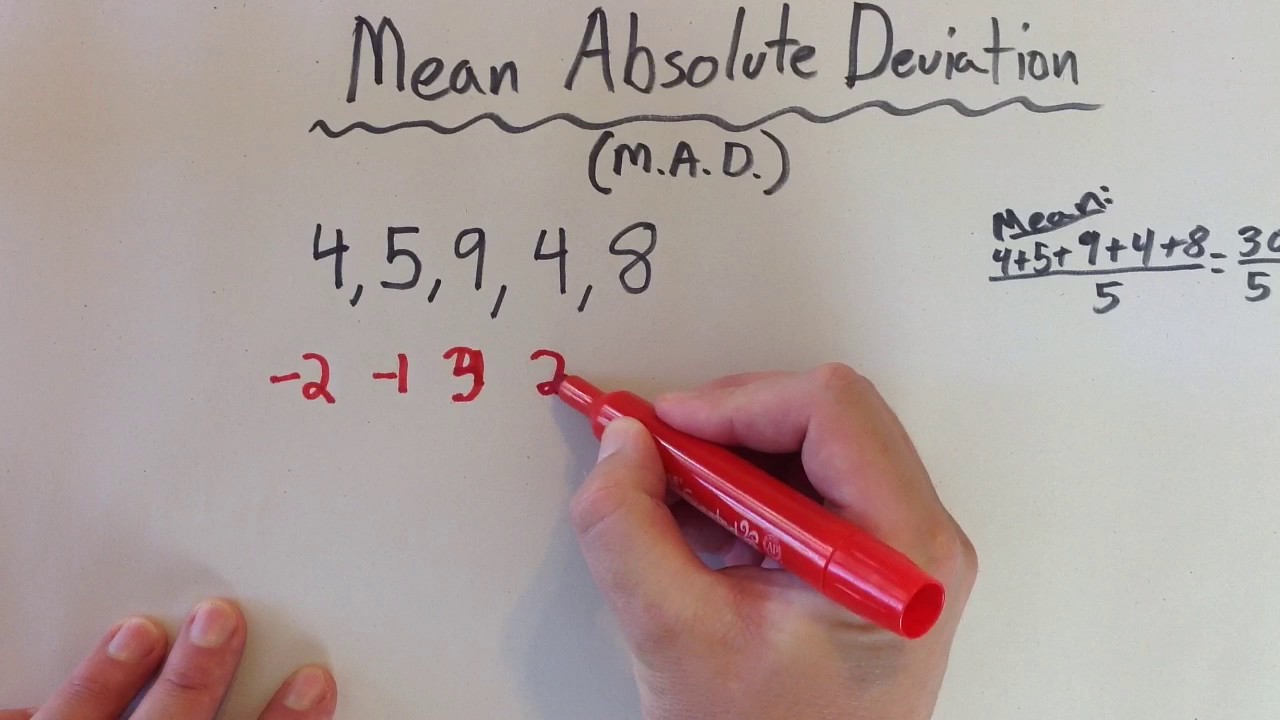 Mean Absolute Deviation
(M.A.D.)
Mean:
4+5+9+4+8 = 30
5 5
4, 5, 9, 4, 8
-2 -1 3 2